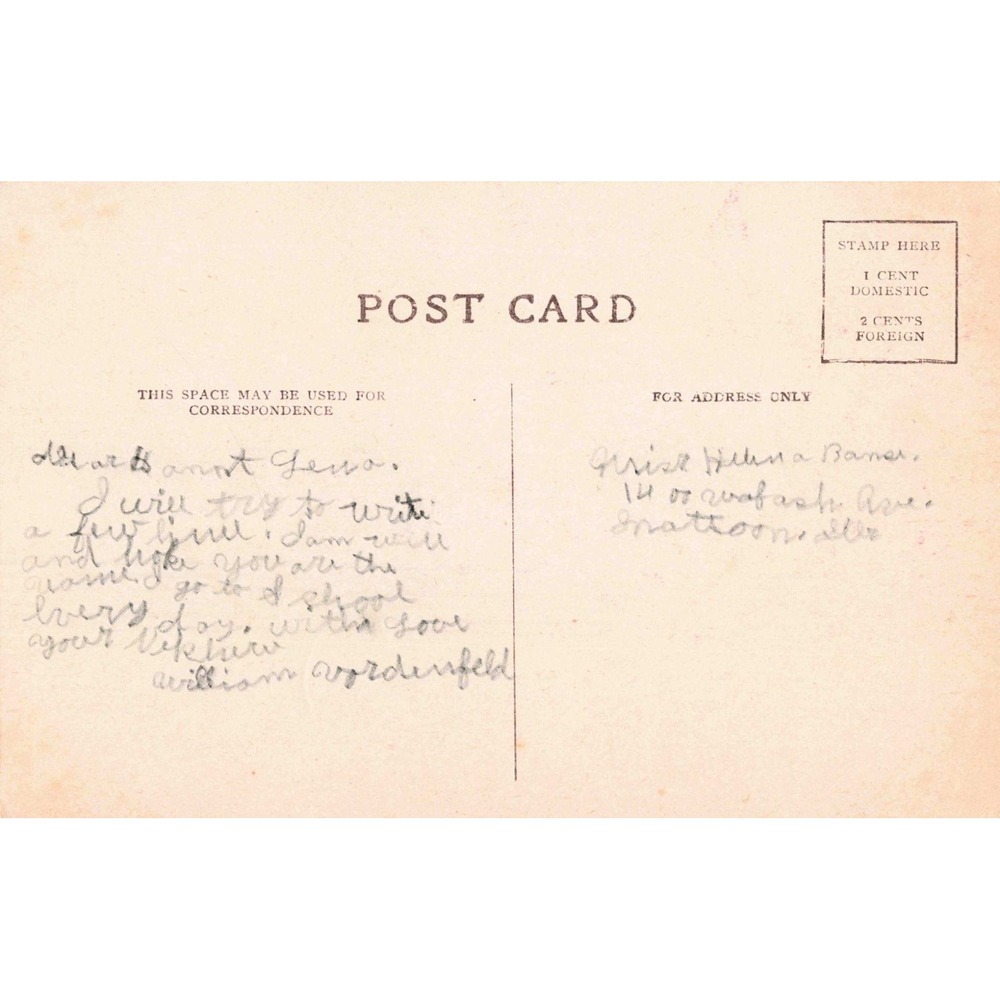 POST CARD
STAMP HERE
1 CENT
DOMESTIC
2 CENTS
FOREIGN
THIS SPACE MAY BE USED FOR
CORRESPONDENCE
Dear Lena.
I will try to write
a few line. I am well
and hope you are the
same. I go to
Every day. with Love
your
William Vordenfeld
FOR ADDRESS ONLY
Miss Helena
1400 Wabash Ave.
Mattoon. Ills